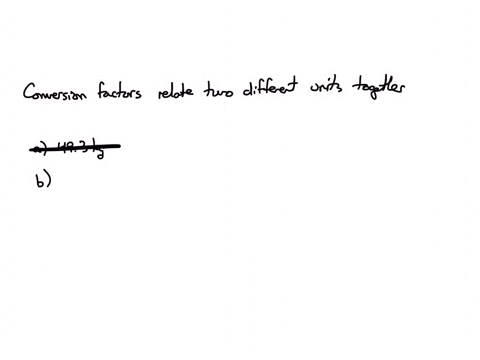 Conversion factors relate two different units together
a) 49.3 kg
b)